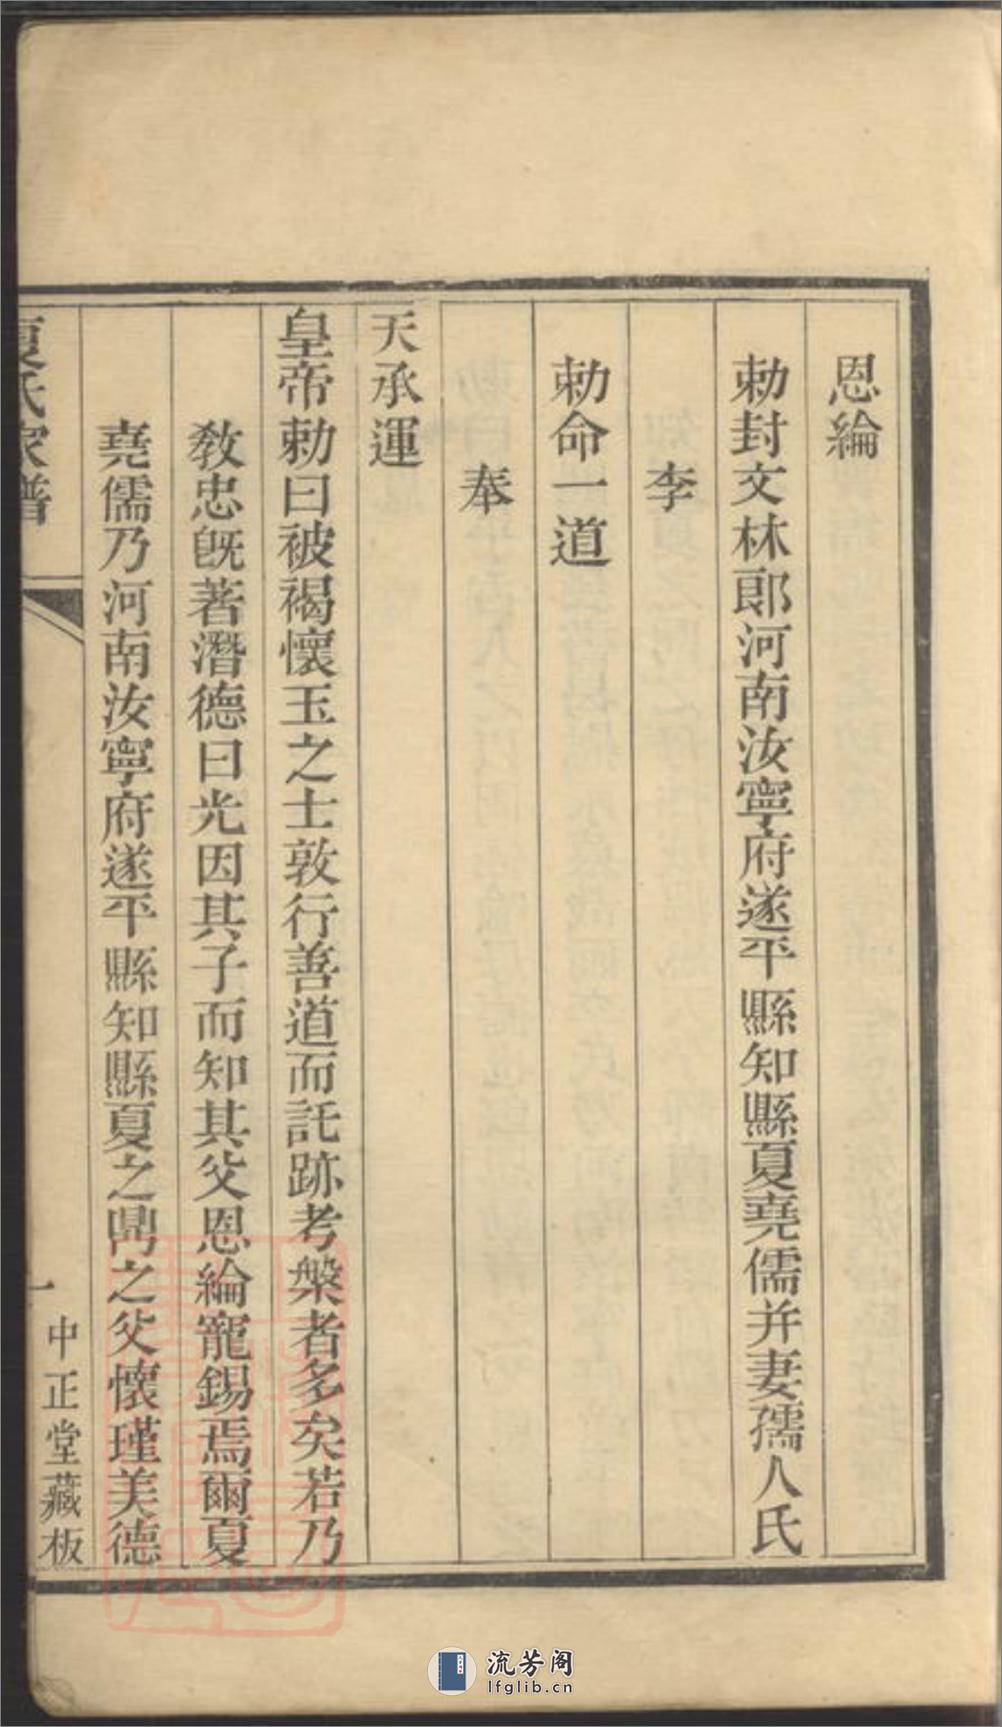 恩綸
勅封文林郎河南汝寧府遂平縣知縣夏堯儒并妻孺人氏
李
勅命一道
奉
天承運
皇帝勅曰被褐懷玉之士敦行善道而託跡考槃者多矣若乃
教忠旣著潛德曰光因其子而知其父恩綸寵錫焉爾夏
堯儒乃河南汝寧府遂平縣知縣夏之鼎之父懷瑾美德
夏氏家譜
一
中正堂藏板
流芳阁
lfglib.cn